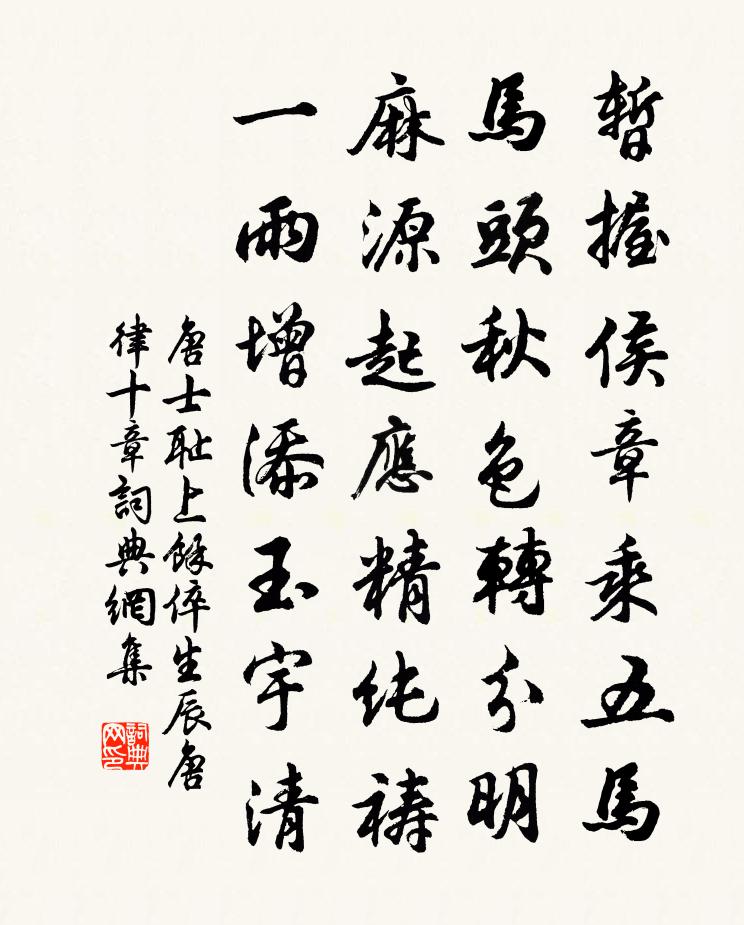 暫握侯章乘五馬
馬頭秋色轉分明
麻源起應精純禱
一雨增添玉宇清
唐士耻上餘倅生辰唐
律十章詞典網集
詞典网印